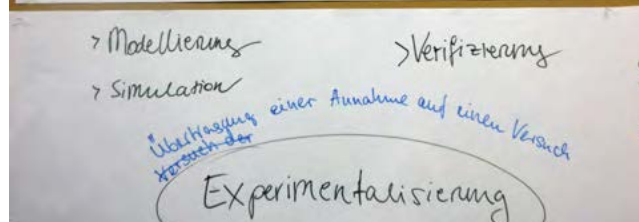 > Modellierung
> Verifizierung
> Simulation
Übertragung einer Annahme auf einen Versuch
Versuch der
Experimentalisierung